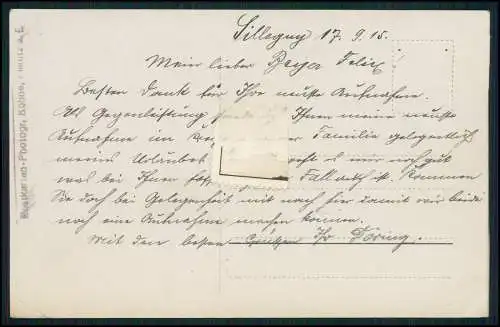 Sillegny 17.9.15.
Mein lieber Beyer Felix
Besten Dank für Ihre nette Aufnahme.
Als Gegenleistung sende Ihnen meine neuste
Aufnahme im Familie gelegentlich
meines Urlaubes mir noch gut
was bei Ihnen Fall ist. Kommen
Sie doch bei Gelegenheit mit nach hier damit wir beide
noch eine Aufnahme machen können.
Mit den besten Grüßen Ihr Döring.